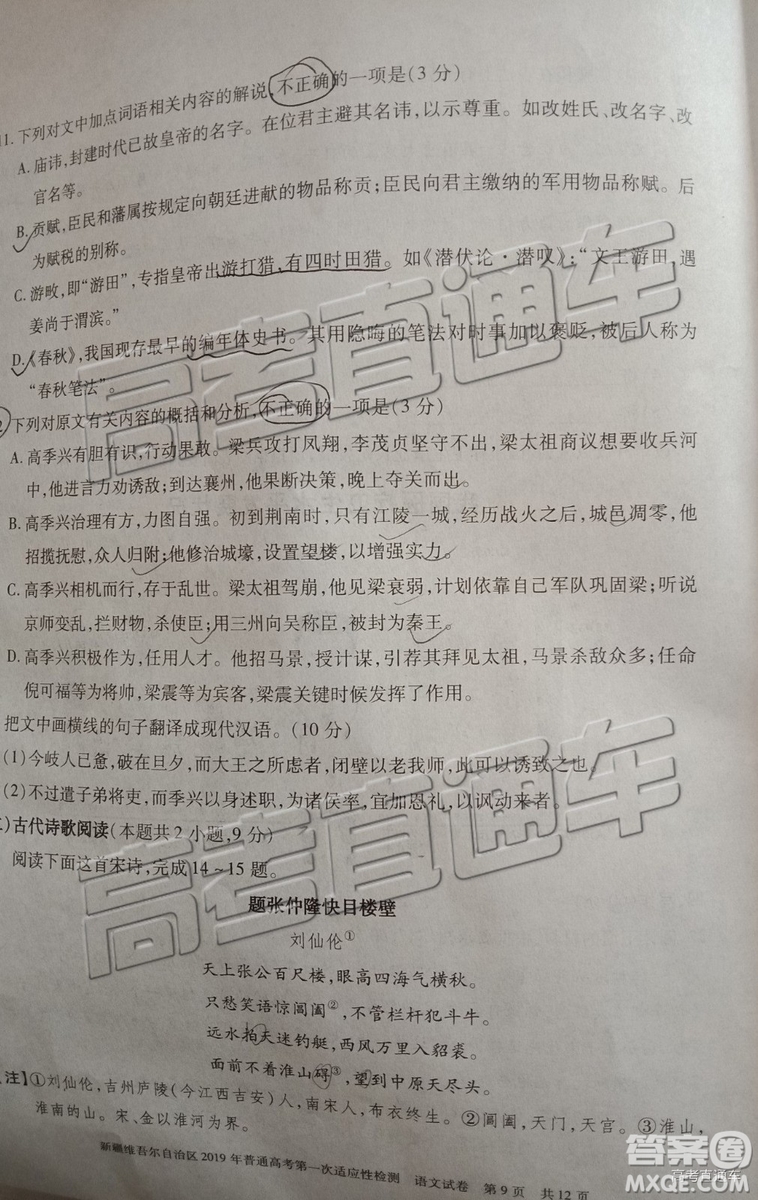 1. 下列对文中加点词语相关内容的解说,不正确的一项是(3 分)
A. 庙讳,封建时代已故皇帝的名字。在位君主要避其名讳,以示尊重。如改姓氏、改名字、改
官名等。
B. 贡赋,臣民和藩属按规定向朝廷进献的物品称贡;臣民向君主缴纳的军用物品称赋。后
为赋税的别称。
C. 游畋,即“游田”,专指皇帝出游打猎,有四时田猎。如《潜伏论·潜叹》:“文王游田,遇
姜尚于渭滨。”
D.《春秋》,我国现存最早的编年体史书。其用隐晦的笔法对时事加以褒贬,被后人称为
“春秋笔法”。
2 下列对原文有关内容的概括和分析,不正确的一项是(3 分)
A. 高季兴有胆有识,行动果敢。梁兵攻打凤翔,李茂贞坚守不出,梁太祖商议想要收兵河
中,他进言力劝诱敌;到达襄州,他果断决策,晚上夺关而出。
B. 高季兴治理有方,力图自强。初到荆南时,只有江陵一城,经历战火之后,城邑凋零,他
招揽抚慰,众人归附;他修治城壕,设置望楼,以增强实力。
C. 高季兴相机而行,存于乱世。梁太祖驾崩,他见梁衰弱,计划依靠自己军队巩固梁;听说
京师变乱,拦财物,杀使臣;用三州向吴称臣,被封为秦王。
D. 高季兴积极作为,任用人才。他招马景,授计谋,引荐其拜见太祖,马景杀敌众多;任命
倪可福等为将帅,梁震等为宾客,梁震关键时候发挥了作用。
把文中画横线的句子翻译成现代汉语。(10 分)
(1)今岐人已惫,破在旦夕,而大王之所虑者,闭壁以老我师,此可以诱致之也。
(2)不过遣子弟将吏,而季兴以身述职,为诸侯率,宜加恩礼,以讽动来者。
)古代诗歌阅读(本题共 2 小题,9 分)
阅读下面这首宋诗,完成 14~15 题。
题张仲隆快目楼壁
刘仙伦①
天上张公百尺楼,眼高四海气横秋。
只愁笑语惊阊阖②,不管栏杆犯斗牛。
远水拍天迷钓艇,西风万里入貂裘。
面前不着淮山碍③,望到中原天尽头。
注】①刘仙伦,吉州庐陵(今江西吉安)人,南宋人,布衣终生。②阊阖,天门,天宫。③淮山,
淮南的山。宋、金以淮河为界。
新疆维吾尔自治区 2019 年普通高考第一次适应性检测 语文试卷 第 9 页 共 12 页
高考直通车
高考直通车
答案圈
MXQE.COM
高考直通车